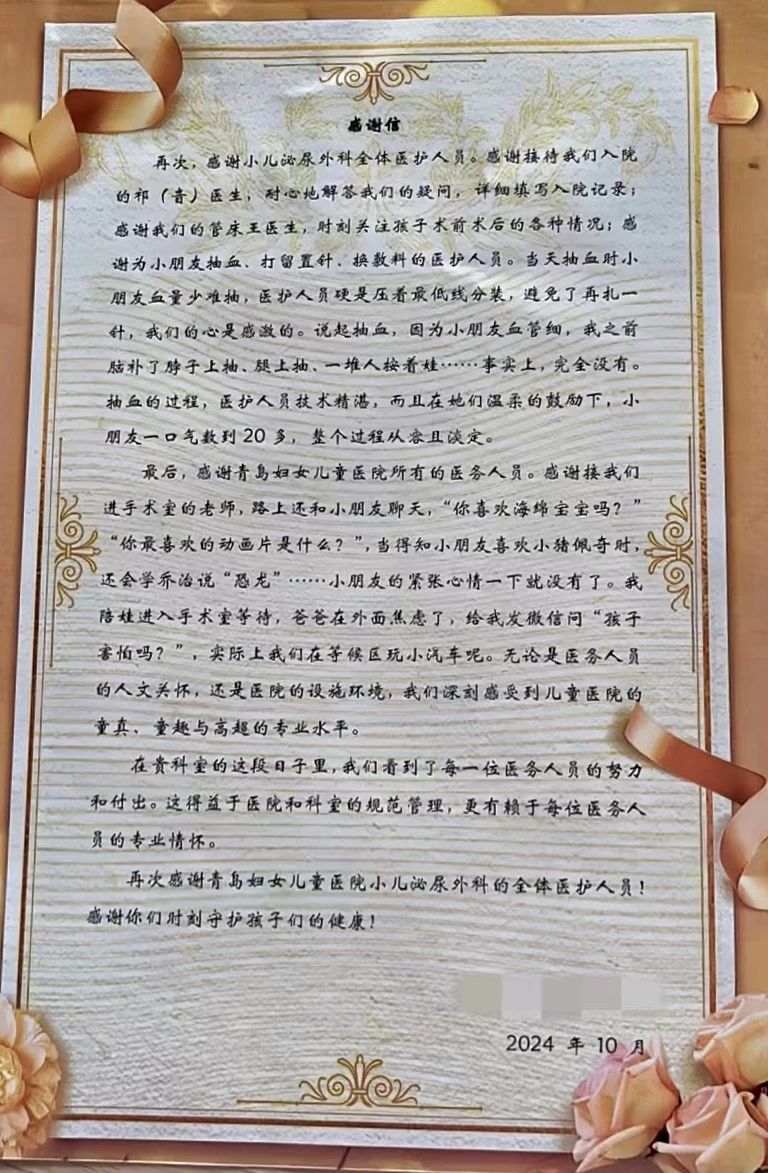 感谢信
再次，感谢小儿泌尿外科全体医护人员。感谢接待我们入院
的祁（音）医生，耐心地解答我们的疑问，详细填写入院记录；
感谢我们的管床王医生，时刻关注孩子术前术后的各种情况；感
谢为小朋友抽血、打留置针、换敷料的医护人员。当天抽血时小
朋友血量少难抽，医护人员硬是压着最低线分装，避免了再扎一
针，我们的心是感激的。说起抽血，因为小朋友血管细，我之前
脑补了脖子上抽、腿上抽、一堆人按着娃……事实上，完全没有。
抽血的过程，医护人员技术精湛，而且在她们温柔的鼓励下，小
朋友一口气数到 20 多，整个过程从容且淡定。
最后，感谢青岛妇女儿童医院所有的医务人员。感谢接我们
进手术室的老师，路上还和小朋友聊天，“你喜欢海绵宝宝吗？”
“你最喜欢的动画片是什么？”，当得知小朋友喜欢小猪佩奇时，
还会学乔治说“恐龙”……小朋友的紧张心情一下就没有了。我
陪娃进入手术室等待，爸爸在外面焦虑了，给我发微信问“孩子
害怕吗？”，实际上我们在等候区玩小汽车呢。无论是医务人员
的人文关怀，还是医院的设施环境，我们深刻感受到儿童医院的
童真、童趣与高超的专业水平。
在贵科室的这段日子里，我们看到了每一位医务人员的努力
和付出。这得益于医院和科室的规范管理，更有赖于每位医务人
员的专业情怀。
再次感谢青岛妇女儿童医院小儿泌尿外科的全体医护人员！
感谢你们时刻守护孩子们的健康！
2024 年 10 月